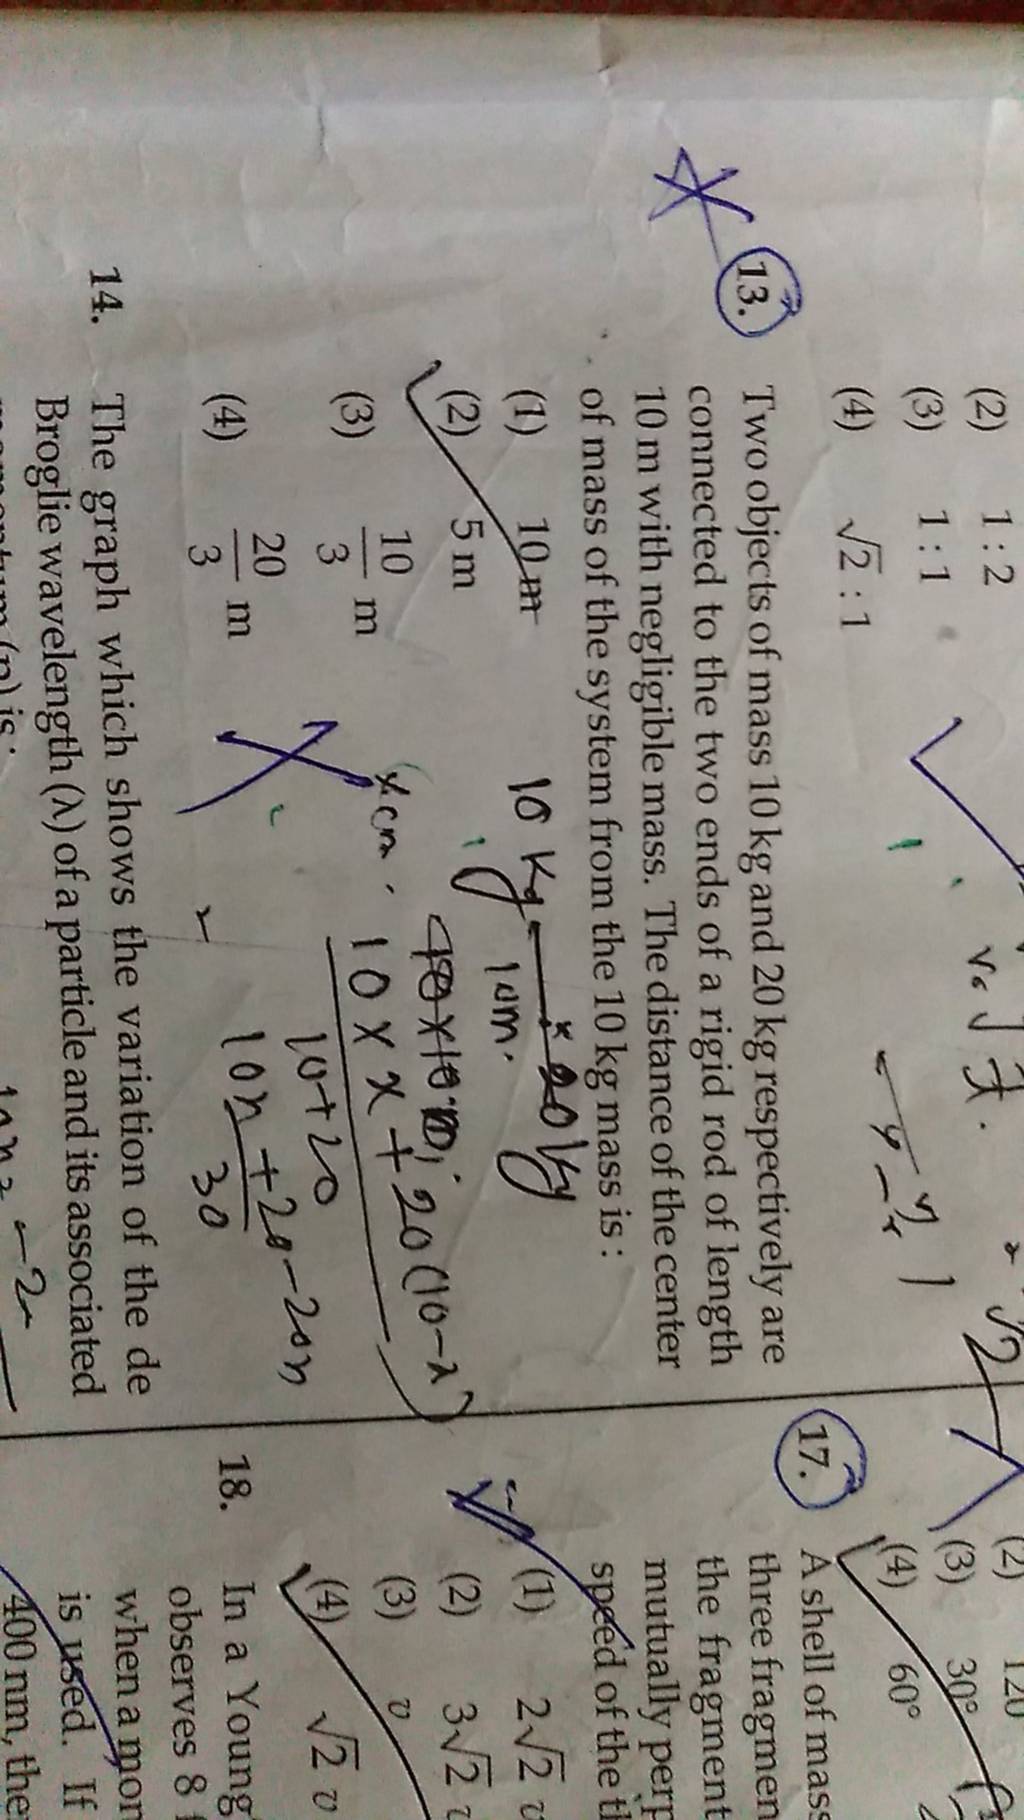 (2) 1 : 2
(3) 1 : 1
(4) √2 : 1
13. Two objects of mass 10 kg and 20 kg respectively are
connected to the two ends of a rigid rod of length
10 m with negligible mass. The distance of the center
of mass of the system from the 10 kg mass is :
(1) 10 m
(2) 5 m
(3) 10/3 m
(4) 20/3 m
10 kg 20 kg
10m.
xcm. 10 x x + 20 (10-x)
10+20
10x + 20-20x
30
14. The graph which shows the variation of the de
Broglie wavelength (λ) of a particle and its associated
(p) is :
(2) 120
(3) 30°
(4) 60°
17. A shell of mass
three fragmen
the fragment
mutually perp
speed of the th
(1) 2√2 v
(2) 3√2 v
(3) v
(4) √2 v
18. In a Young
observes 8
when a mon
is used. If
400 nm, the